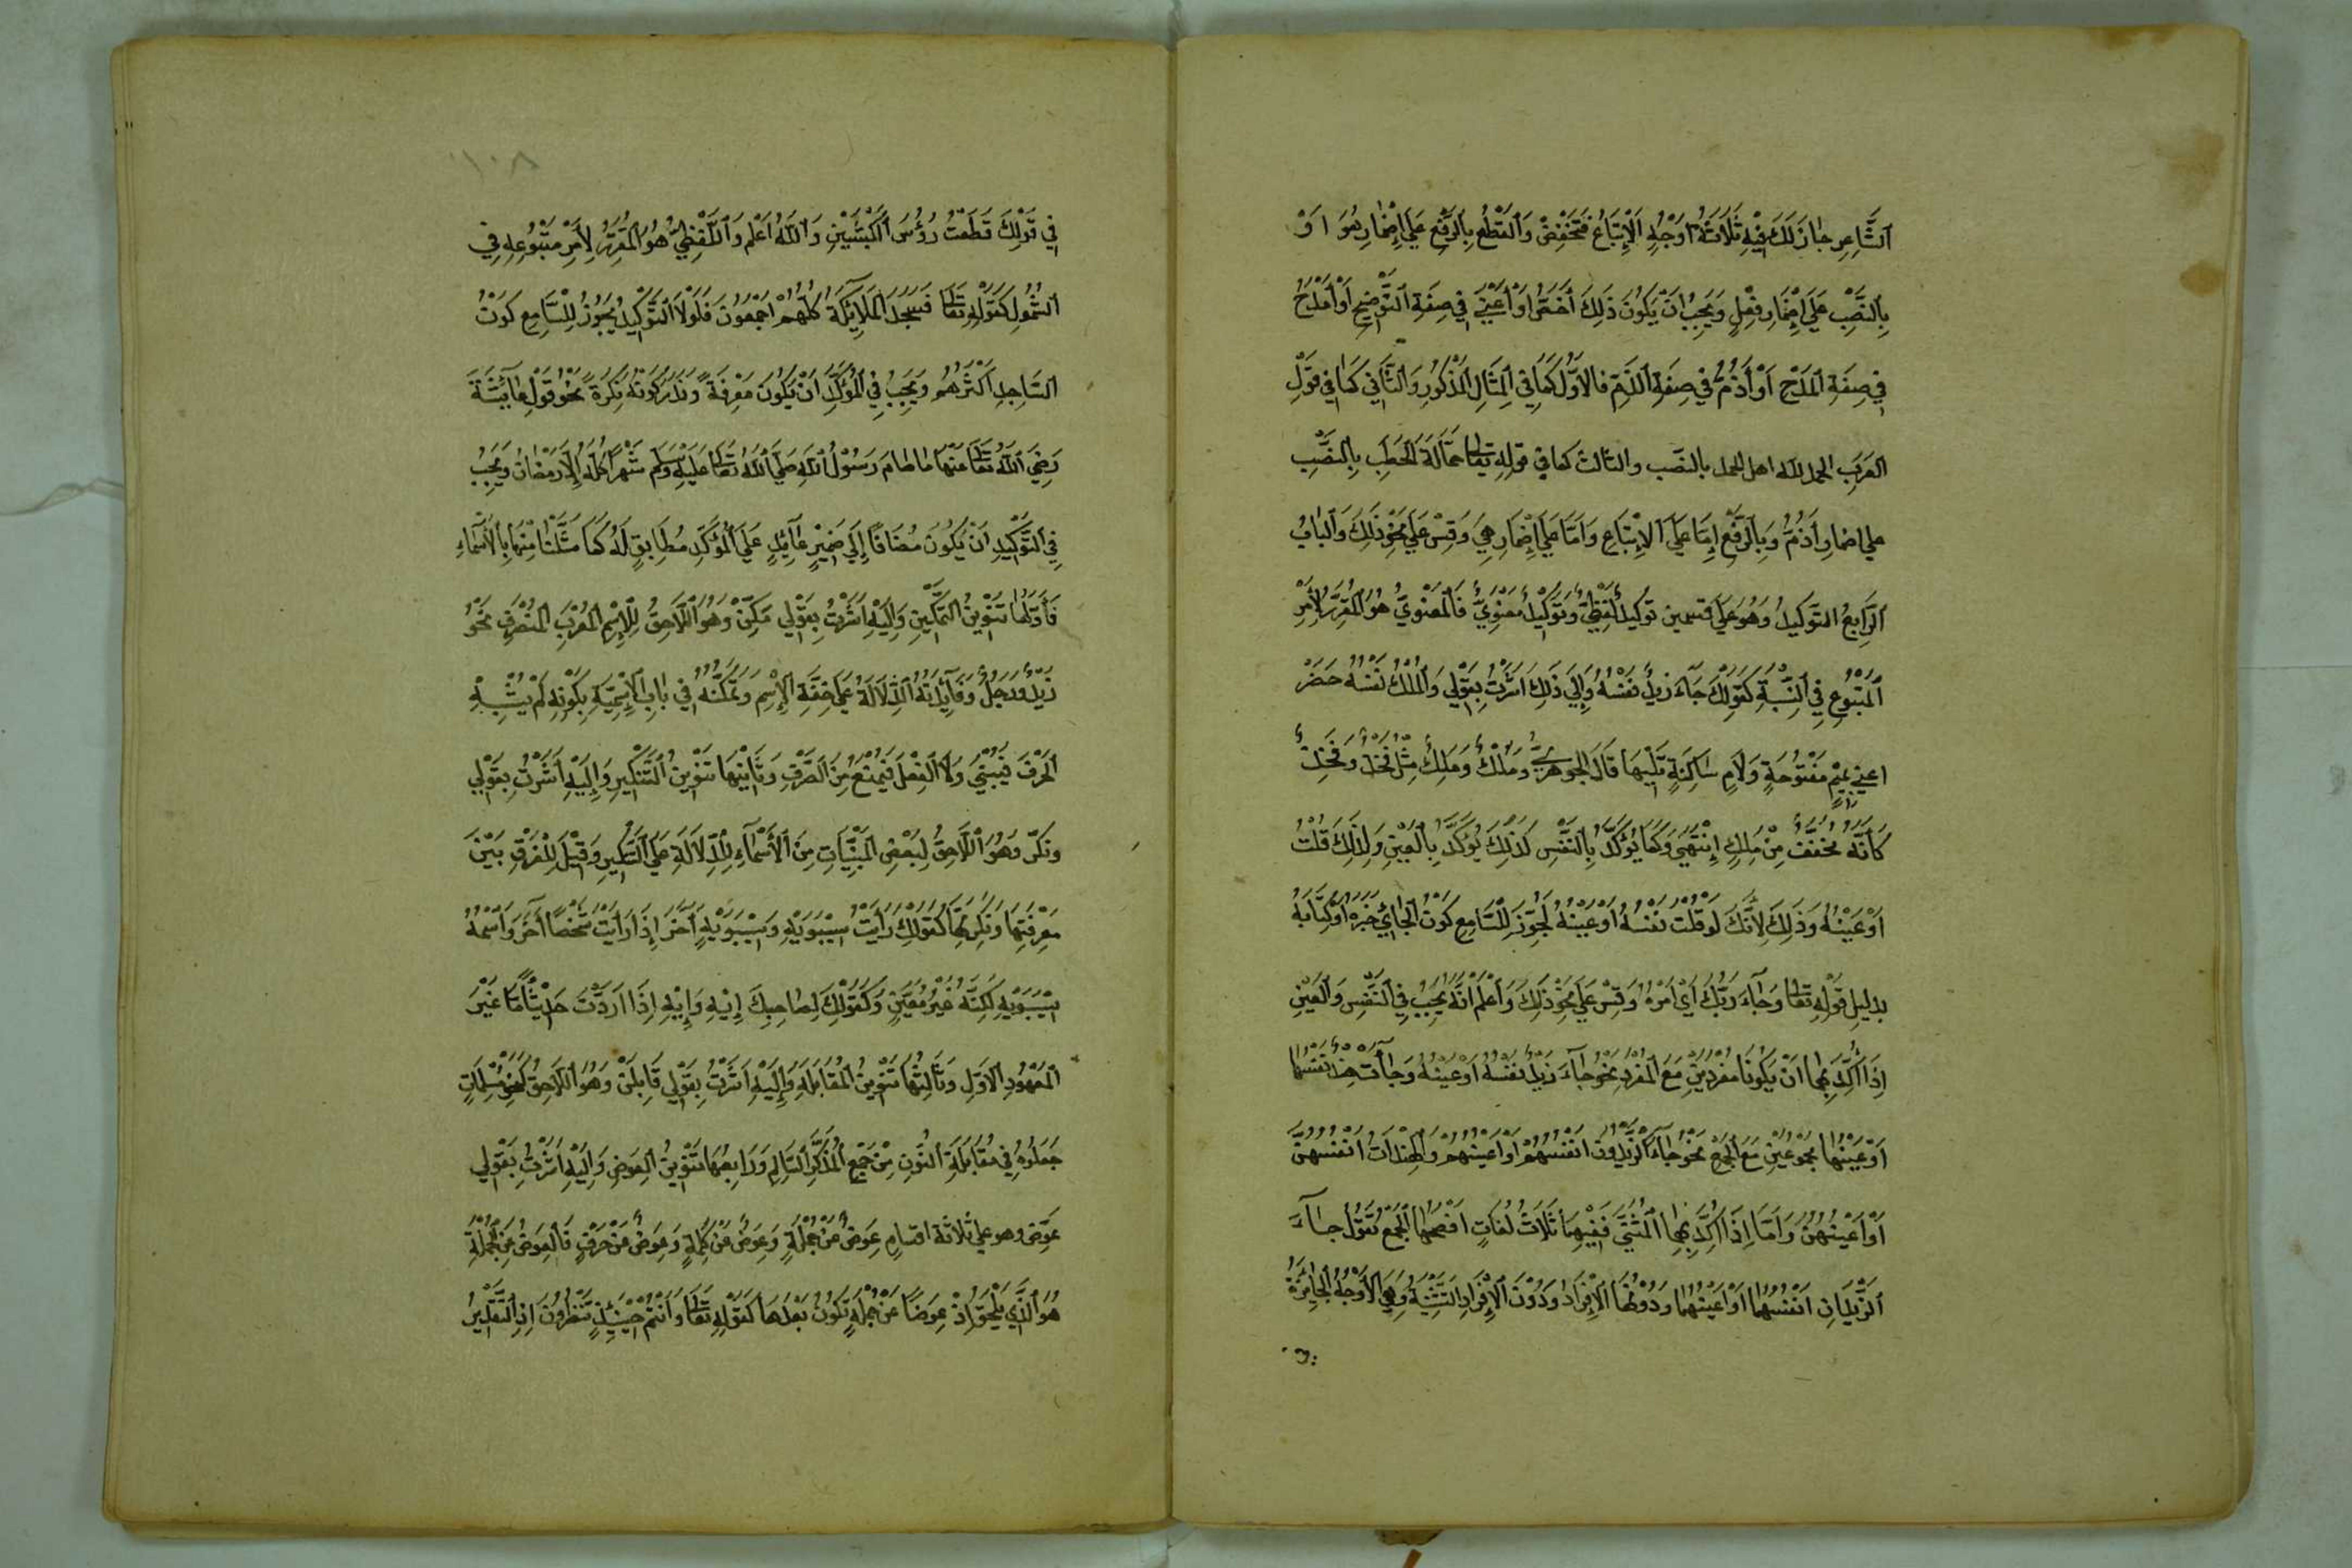 اَلشَّاعِرِ جَازَ لَكَ فِيْهِ ثَلَاثَةُ اَوْجُهِ اَلْاِتْبَاعُ فَتَخْفِضُ وَالْقَطْعُ بِالرَّفْعِ عَلَى اِضْمَارِ هُوَ اَوْ
بِالنَّصْبِ عَلَى اِضْمَارِ فِعْلٍ وَيَجِبُ اَنْ يَكُونَ ذَلِكَ اَخُصُّ اَوْ اَعْنِي فِي صِفَةِ التَّوْضِيحِ اَوْ اَمْدَحُ
فِي صِفَةِ الْمَدْحِ اَوْ اَذُمُّ فِي صِفَةِ الذَّمِّ فَالْاَوَّلُ كَمَا فِي الْمِثَالِ الْمَذْكُورِ وَالثَّانِي كَمَا فِي قَوْلِ
الْعَرَبِ الحمد للّٰه اهل الحمد بالنصب والثالث كما في قوله تعالى حَمَّالَةَ الْحَطَبِ بِالنَّصْبِ
علي اضمار اَذُمُّ وَبِالرَّفْعِ اِمَّا عَلَى الْاِتْبَاعِ وَاَمَّا عَلَى اِضْمَارِ هِيَ وَقِسْ عَلَى نَحْوِ ذَلِكَ وَالْبَابُ
اَلرَّابِعُ التَّوْكِيدُ وَهُوَ عَلَى قسمين توكيد لَفْظِيٌّ وَتَوْكِيدٌ مَعْنَوِيٌّ فَالْمَعْنَوِيُّ هُوَ الْمُقَرِّرُ لِاَمْرِ
اَلْمَتْبُوعِ فِي النِّسْبَةِ كَقَوْلِكَ جَاءَ زَيْدٌ نَفْسُهُ وَاِلَى ذَلِكَ اَشَرْتُ بِقَوْلِي وَالْمَلْكُ نَفْسُهُ حَضَرْ
اعني بِمِيْمٍ مَفْتُوحَةٍ وَلَامٍ سَاكِنَةٍ تَلِيْهَا قَالَ الْجَوْهَرِيُّ وَمَلْكٌ وَمَلِكٌ مِثْلُ فَخْذٍ وَفَخِذٍ
كَأَنَّهُ مُخَفَّفٌ مِنْ مَلِكٍ اِنْتَهَى وَكَمَا يُؤَكَّدُ بِالنَّفْسِ كَذَلِكَ يُؤَكَّدُ بِالْعَيْنِ وَلِذَلِكَ قُلْتُ
اَوْ عَيْنُهُ وَذَلِكَ لِاَنَّكَ لَوْ قُلْتَ نَفْسُهُ اَوْ عَيْنُهُ لَجُوِّزَ لِلسَّامِعِ كَوْنُ الْجَائِي خَبَرَهُ اَوْ كِتَابَهُ
بدليلِ قَوْلِهِ تعالى وَجَاءَ رَبُّكَ اَيْ اَمْرُهُ وَقِسْ عَلَى نَحْوِ ذَلِكَ وَاعْلَمْ اَنَّهُ يَجِبُ فِي النَّفْسِ وَالْعَيْنِ
اِذَا اُكِّدَ بِهِمَا اَنْ يَكُونَا مُفْرَدَيْنِ مَعَ الْمُفْرَدِ نَحْوُ جَاءَ زَيْدٌ نَفْسُهُ اَوْ عَيْنُهُ وَجَاءَتْ هِنْدٌ نَفْسُهَا
اَوْ عَيْنُهَا مَجْمُوعَيْنِ مَعَ الْجَمْعِ نَحْوُ جَاءَ الزَّيْدُونَ اَنْفُسُهُمْ اَوْ اَعْيُنُهُمْ وَالْهِنْدَاتُ اَنْفُسُهُنَّ
اَوْ اَعْيُنُهُنَّ وَاَمَّا اِذَا اُكِّدَ بِهِمَا الْمُثَنَّى فَفِيْهِمَا ثَلَاثُ لُغَاتٍ اَفْصَحُهَا الْجَمْعُ تَقُولُ جَاءَ
اَلزَّيْدَانِ اَنْفُسُهُمَا اَوْ اَعْيُنُهُمَا وَدُونَهَا الْاِفْرَادُ وَدُونَ الْاِفْرَادِ التَّثْنِيَةُ وَهِيَ الْاَوْجُهُ الْجَائِزَةُ
في
١٠٨
فِي قَوْلِكَ قَطَعْتُ رُؤُسَ الْكَبْشَيْنِ وَاللّٰهُ اَعْلَم وَاللَّفْظِيُّ هُوَ الْمُقَرِّرُ لِاَمْرِ مَتْبُوعِهِ فِي
الشُّمُولِ كَقَوْلِهِ تعالى فَسَجَدَ الْمَلَائِكَةُ كُلُّهُمْ اَجْمَعُونَ فَلَوْلَا التَّوْكِيدُ يُجَوَّزُ لِلسَّامِعِ كَوْنُ
السَّاجِدِ اَكْثَرَهُمْ وَيَجِبُ فِي الْمُؤَكَّدِ اَنْ يَكُونَ مَعْرِفَةً وَنَدَرَ كَوْنُهُ نَكِرَةً نَحْوُ قَوْلِ عَائِشَةَ
رَضِيَ اللّٰهُ تعالى عَنْهَا مَا صَامَ رَسُولُ اللّٰهِ صَلَّى اللّٰهُ تعالى عَلَيْهِ وَسَلَّم شَهْرًا كُلَّهُ اِلَّا رَمَضَانَ وَيَجِبُ
فِي التَّوْكِيدِ اَنْ يَكُونَ مُضَافًا اِلَى ضَمِيرٍ عَائِدٍ عَلَى الْمُؤَكَّدِ مُطَابِقٍ لَهُ كَمَا مَثَّلْنَا مِنْهَا بِالْاَسْمَاءِ
فَأَوَّلُهَا تَنْوِينُ التَّمْكِينِ وَاِلَيْهِ اَشَرْتُ بِقَوْلِي مَكِّنْ وَهُوَ اللَّاحِقُ لِلْاِسْمِ الْمُعْرَبِ الْمُنْصَرِفِ نَحْوُ
زَيْدٌ وَرَجُلٌ وَفَائِدَتُهُ الدَّلَالَةُ عَلَى خِفَّةِ الْاِسْمِ وَتَمَكُّنِهِ فِي بَابِ الْاِسْمِيَّةِ بِكَوْنِهِ لَمْ يُشْبِهِ
الْحَرْفَ فَيُبْنَى وَلَا الْفِعْلَ فَيُمْنَعُ مِنَ الصَّرْفِ وَثَانِيْهَا تَنْوِينُ التَّنْكِيرِ وَاِلَيْهِ اَشَرْتُ بِقَوْلِي
وَنَكِّرْ وَهُوَ اللَّاحِقُ لِبَعْضِ الْمَبْنِيَّاتِ مِنَ الْاَسْمَاءِ لِلدَّلَالَةِ عَلَى التَّنْكِيرِ وَقِيْلَ لِلْفَرْقِ بَيْنَ
مَعْرِفَتِهَا وَنَكِرَتِهَا كَقَوْلِكَ رَاَيْتُ سِيْبَوَيْهِ وَسِيْبَوَيْهٍ آخَرَ اِذَا رَاَيْتَ شَخْصًا آخَرَ وَاسْمُهُ
سِيْبَوَيْهِ لَكِنَّهُ غَيْرُ مُعَيَّنٍ وَكَقَوْلِكَ لِصَاحِبِكَ اِيْهِ وَاِيْهٍ اِذَا اَرَدْتَ حَدِيْثًا مَّا غَيْرَ
الْمَعْهُودِ الْاَوَّلِ وَثَالِثُهَا تَنْوِينُ الْمُقَابَلَةِ وَاِلَيْهِ اَشَرْتُ بِقَوْلِي قَابِلَنْ وَهُوَ اللَّاحِقُ لِنَحْوِ مُسْلِمَاتٍ
جَعَلُوهُ فِي مُقَابَلَةِ النُّونِ مِنْ جَمْعِ الْمُذَكَّرِ السَّالِمِ وَرَابِعُهَا تَنْوِينُ الْعِوَضِ وَاِلَيْهِ اَشَرْتُ بِقَوْلِي
عَوِّضْ وهو علي ثلاثة اقسام عِوَضٌ عَنْ جُمْلَةٍ وَعِوَضٌ عَنْ كَلِمَةٍ وَعِوَضٌ عَنْ حَرْفٍ فَالْعِوَضُ عَنِ الْجُمْلَةِ
هُوَ الَّذِي يَلْحَقُ اِذْ عِوَضًا عَنْ جُمْلَةٍ تَكُونُ بَعْدَهَا كَقَوْلِهِ تعالى وَاَنْتُمْ حِيْنَئِذٍ تَنْظُرُونَ اِذِ التَّقْدِيرُ